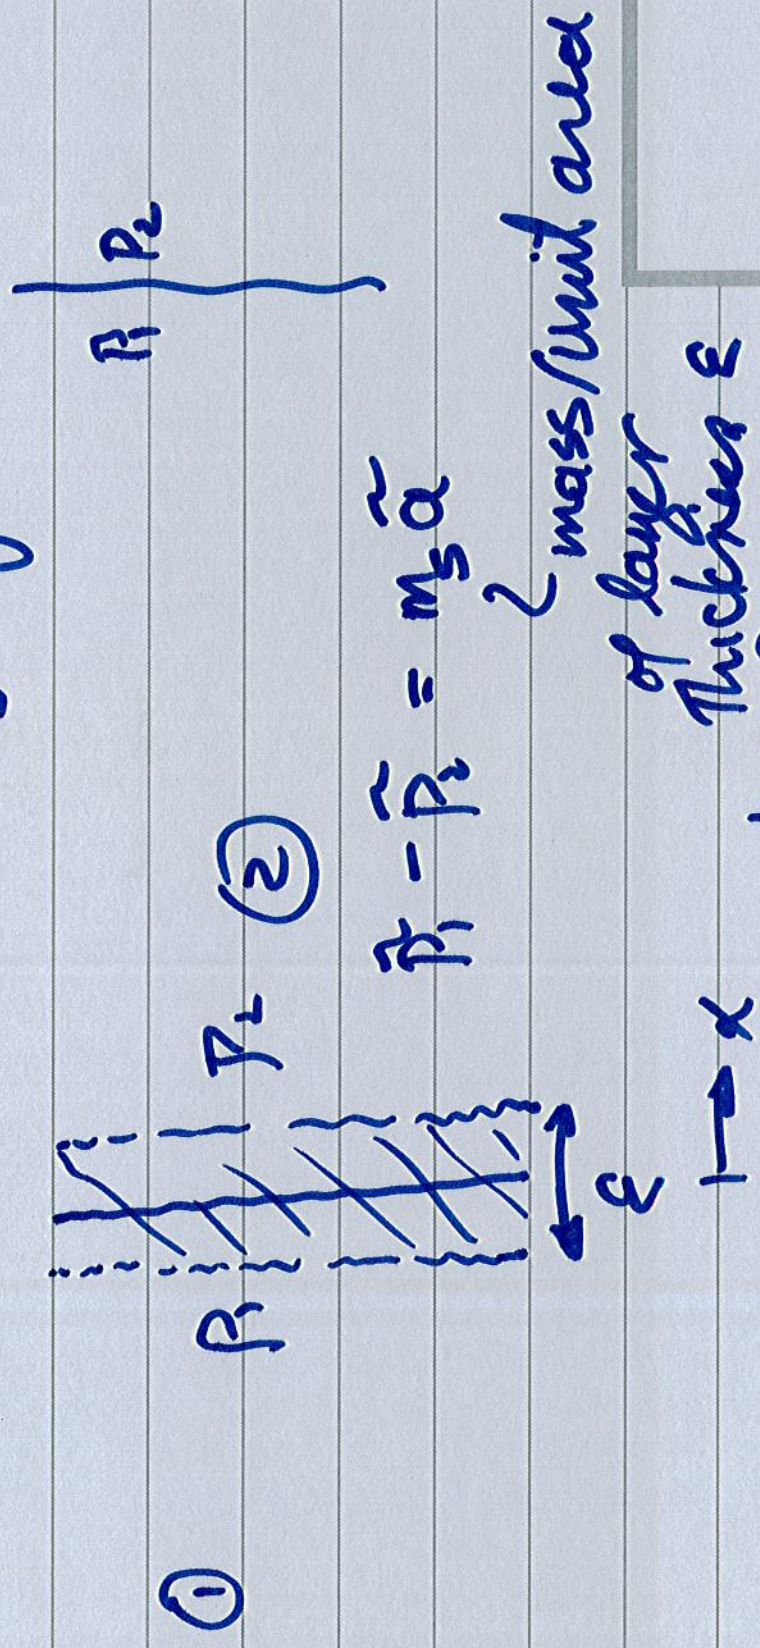 ① P₁ P₂ ② P₁ P₂
p̃₁ - p̃₂ = mₛ ã
mass/unit area
of layer
ε thickness ε
x